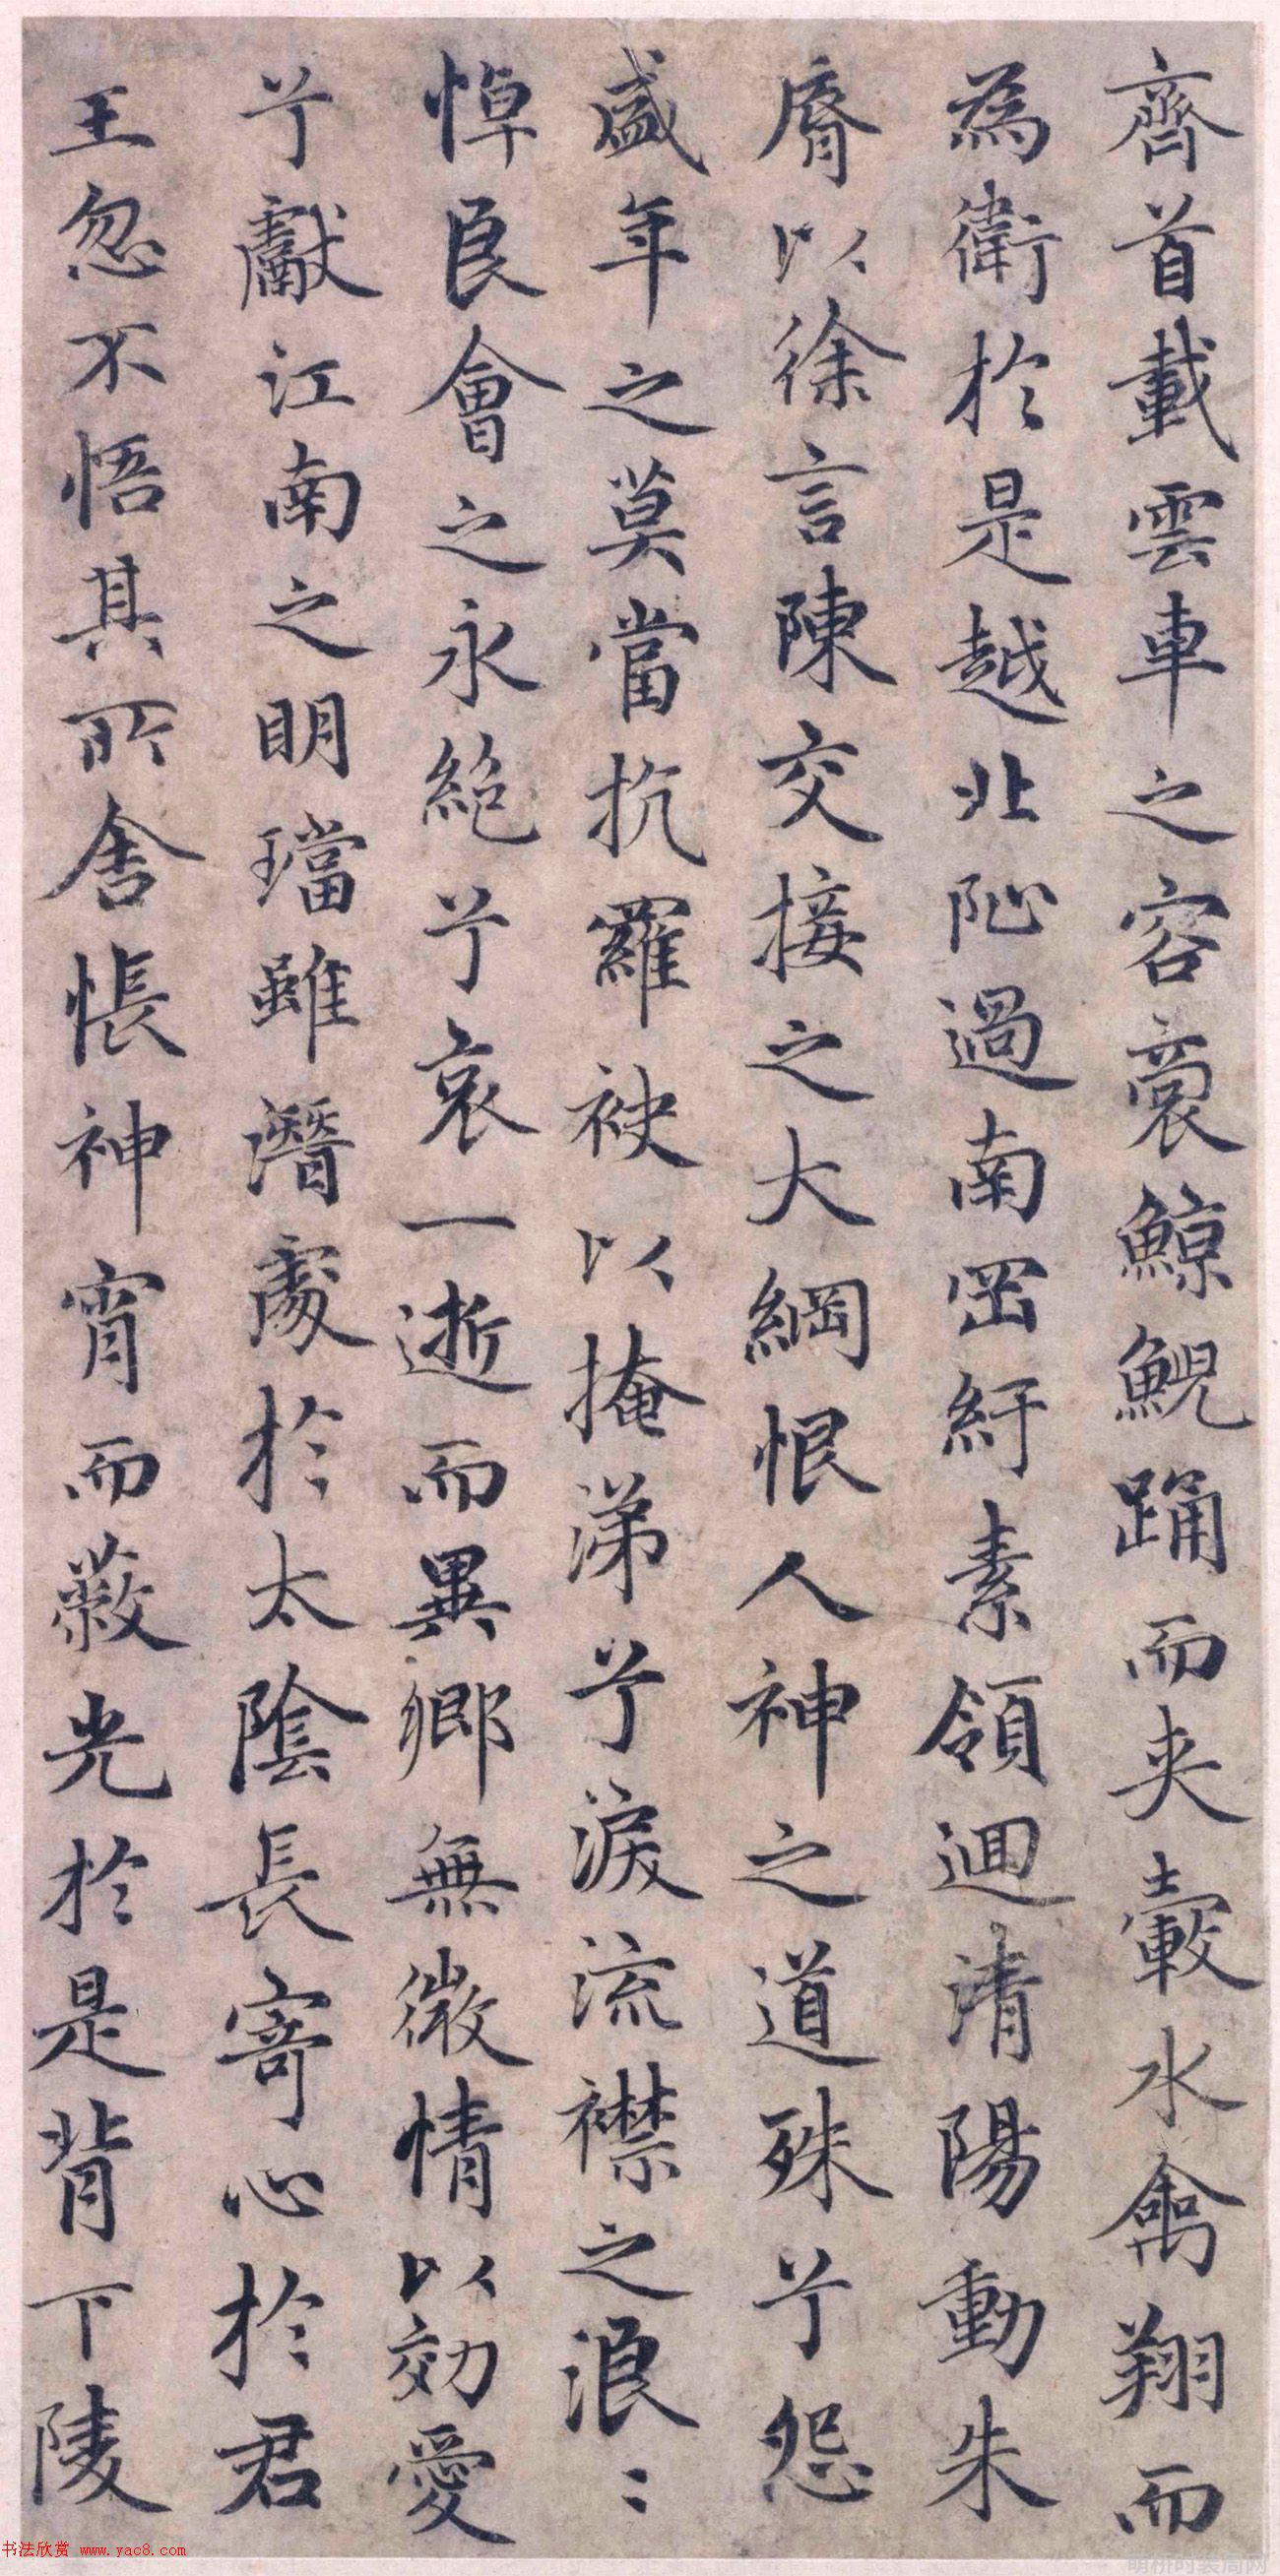 齊首載雲車之容裔鯨鯢踊而夾轂水禽翔而
為衛於是越北阯過南岡紆素領迴清陽動朱
脣以徐言陳交接之大綱恨人神之道殊兮怨
盛年之莫當抗羅袂以掩涕兮淚流襟之浪〻
悼良會之永絕兮哀一逝而異鄉無微情以効愛
兮獻江南之明璫雖潛處於太陰長寄心於君
王忽不悟其所舍悵神宵而蔽光於是背下陵
书法欣赏 www.yac8.com